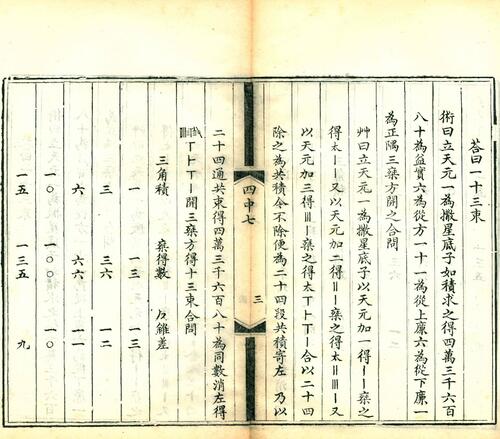 荅曰一十三束
術曰立天元一為撒星底子如積求之得四萬三千六百
八十為益實六為從方一十一為從上廉六為從下廉一
為正隅三乗方開之合問
艸曰立天元一為撒星底子以天元加一得丨丨乗之
得太丨丨又以天元加二得〢丨乗之得太〢〣丨又
以天元加三得〣丨乗之得太丅⺊丅丨合以二十四
除之為共積令不除便為二十四段共積寄左乃以
四中七
三
二十四通共束得四萬三千六百八十為同數消左得
丅⺊丅丨開三乗方得十三束合問
三角積 乗得數 反錐差
一 一三 一三
三 三六 一二
六 六六 一一
一〇 一〇〇 一〇
一五 一三五 九